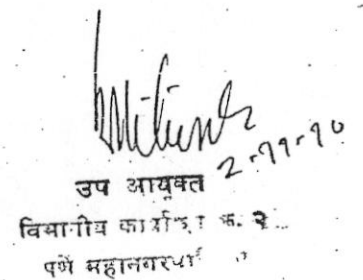 2-11-10
उप आयुक्त
विभागीय कार्यालय क्र. २
पुणे महानगरपा